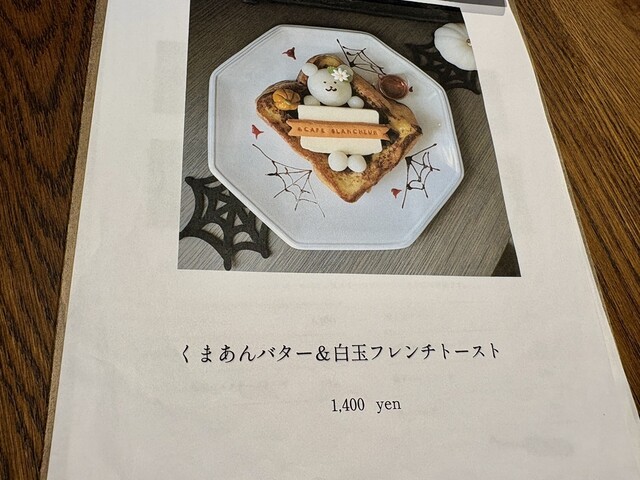 CAFE BLANCHEUR
くまあんバター＆白玉フレンチトースト
1,400 yen